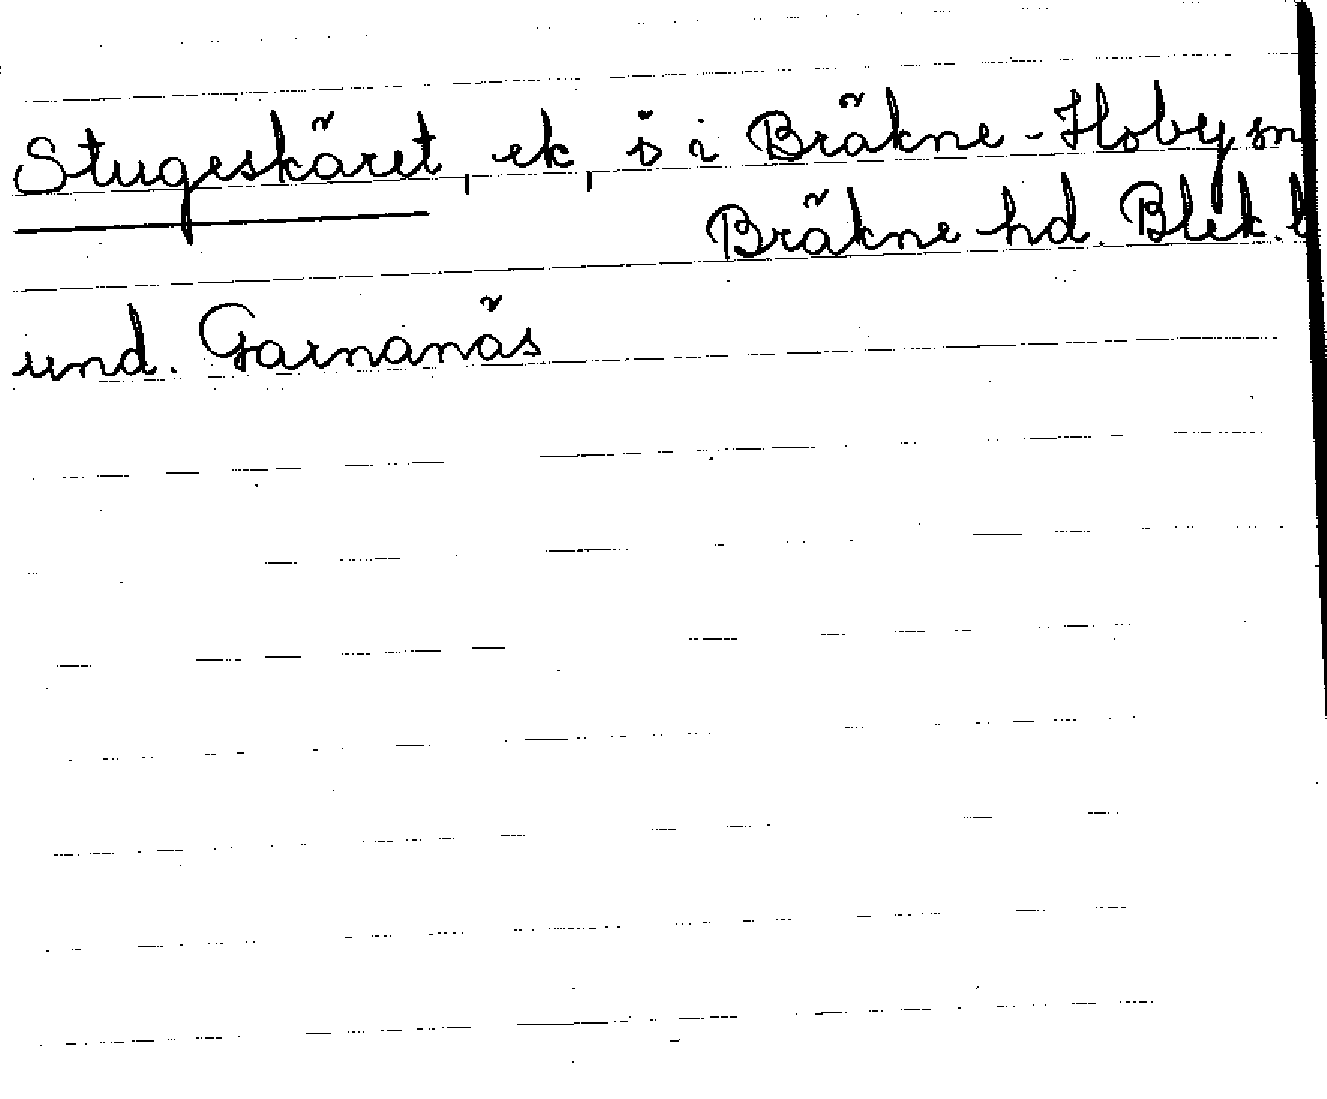 Stugeskäret, ek, ö i Bräkne-Hoby sn
Bräkne hd. Blek. l
und. Garnanäs